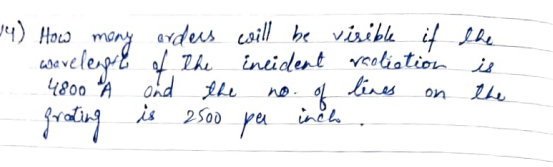 14) How many orders will be visible if the
wavelength of the incident radiation is
4800 °A and the no. of lines on the
grating is 2500 per inch.